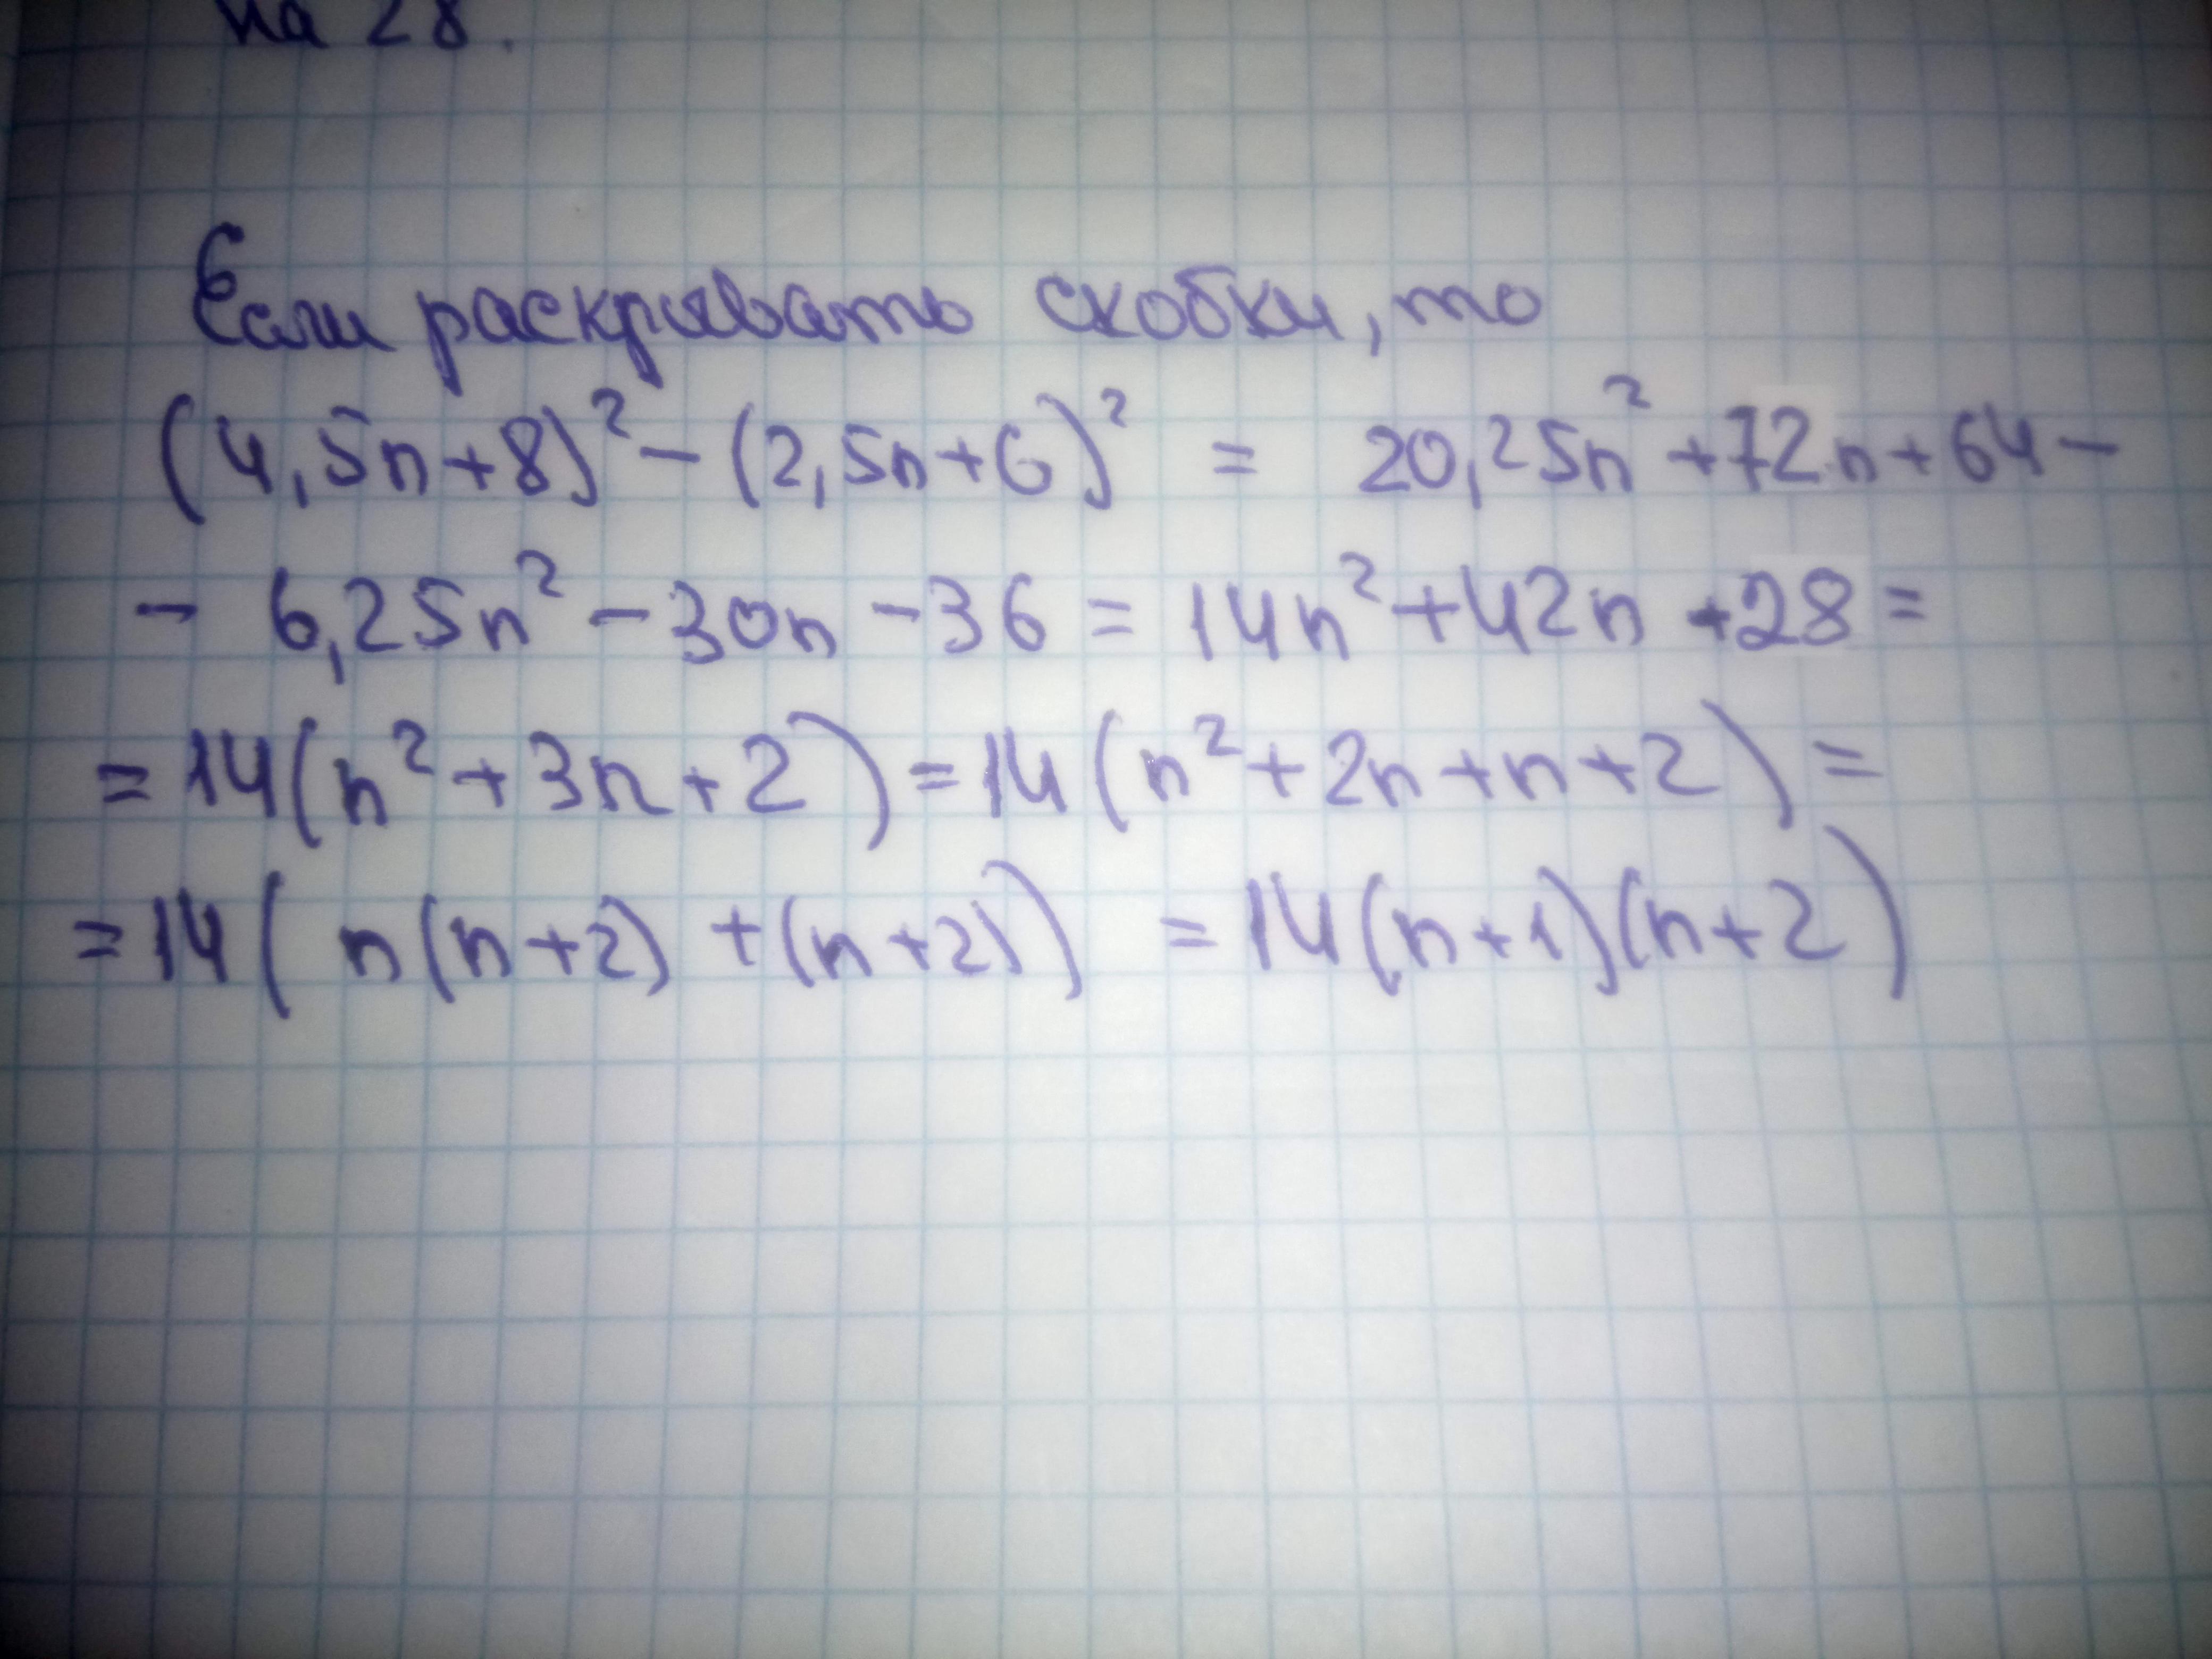 на 28.
Если раскрывать скобки, то
(4,5n+8)² − (2,5n+6)² = 20,25n² + 72n + 64 −
− 6,25n² − 30n − 36 = 14n² + 42n + 28 =
= 14(n² + 3n + 2) = 14(n² + 2n + n + 2) =
= 14( n(n+2) + (n+2)) = 14(n+1)(n+2)